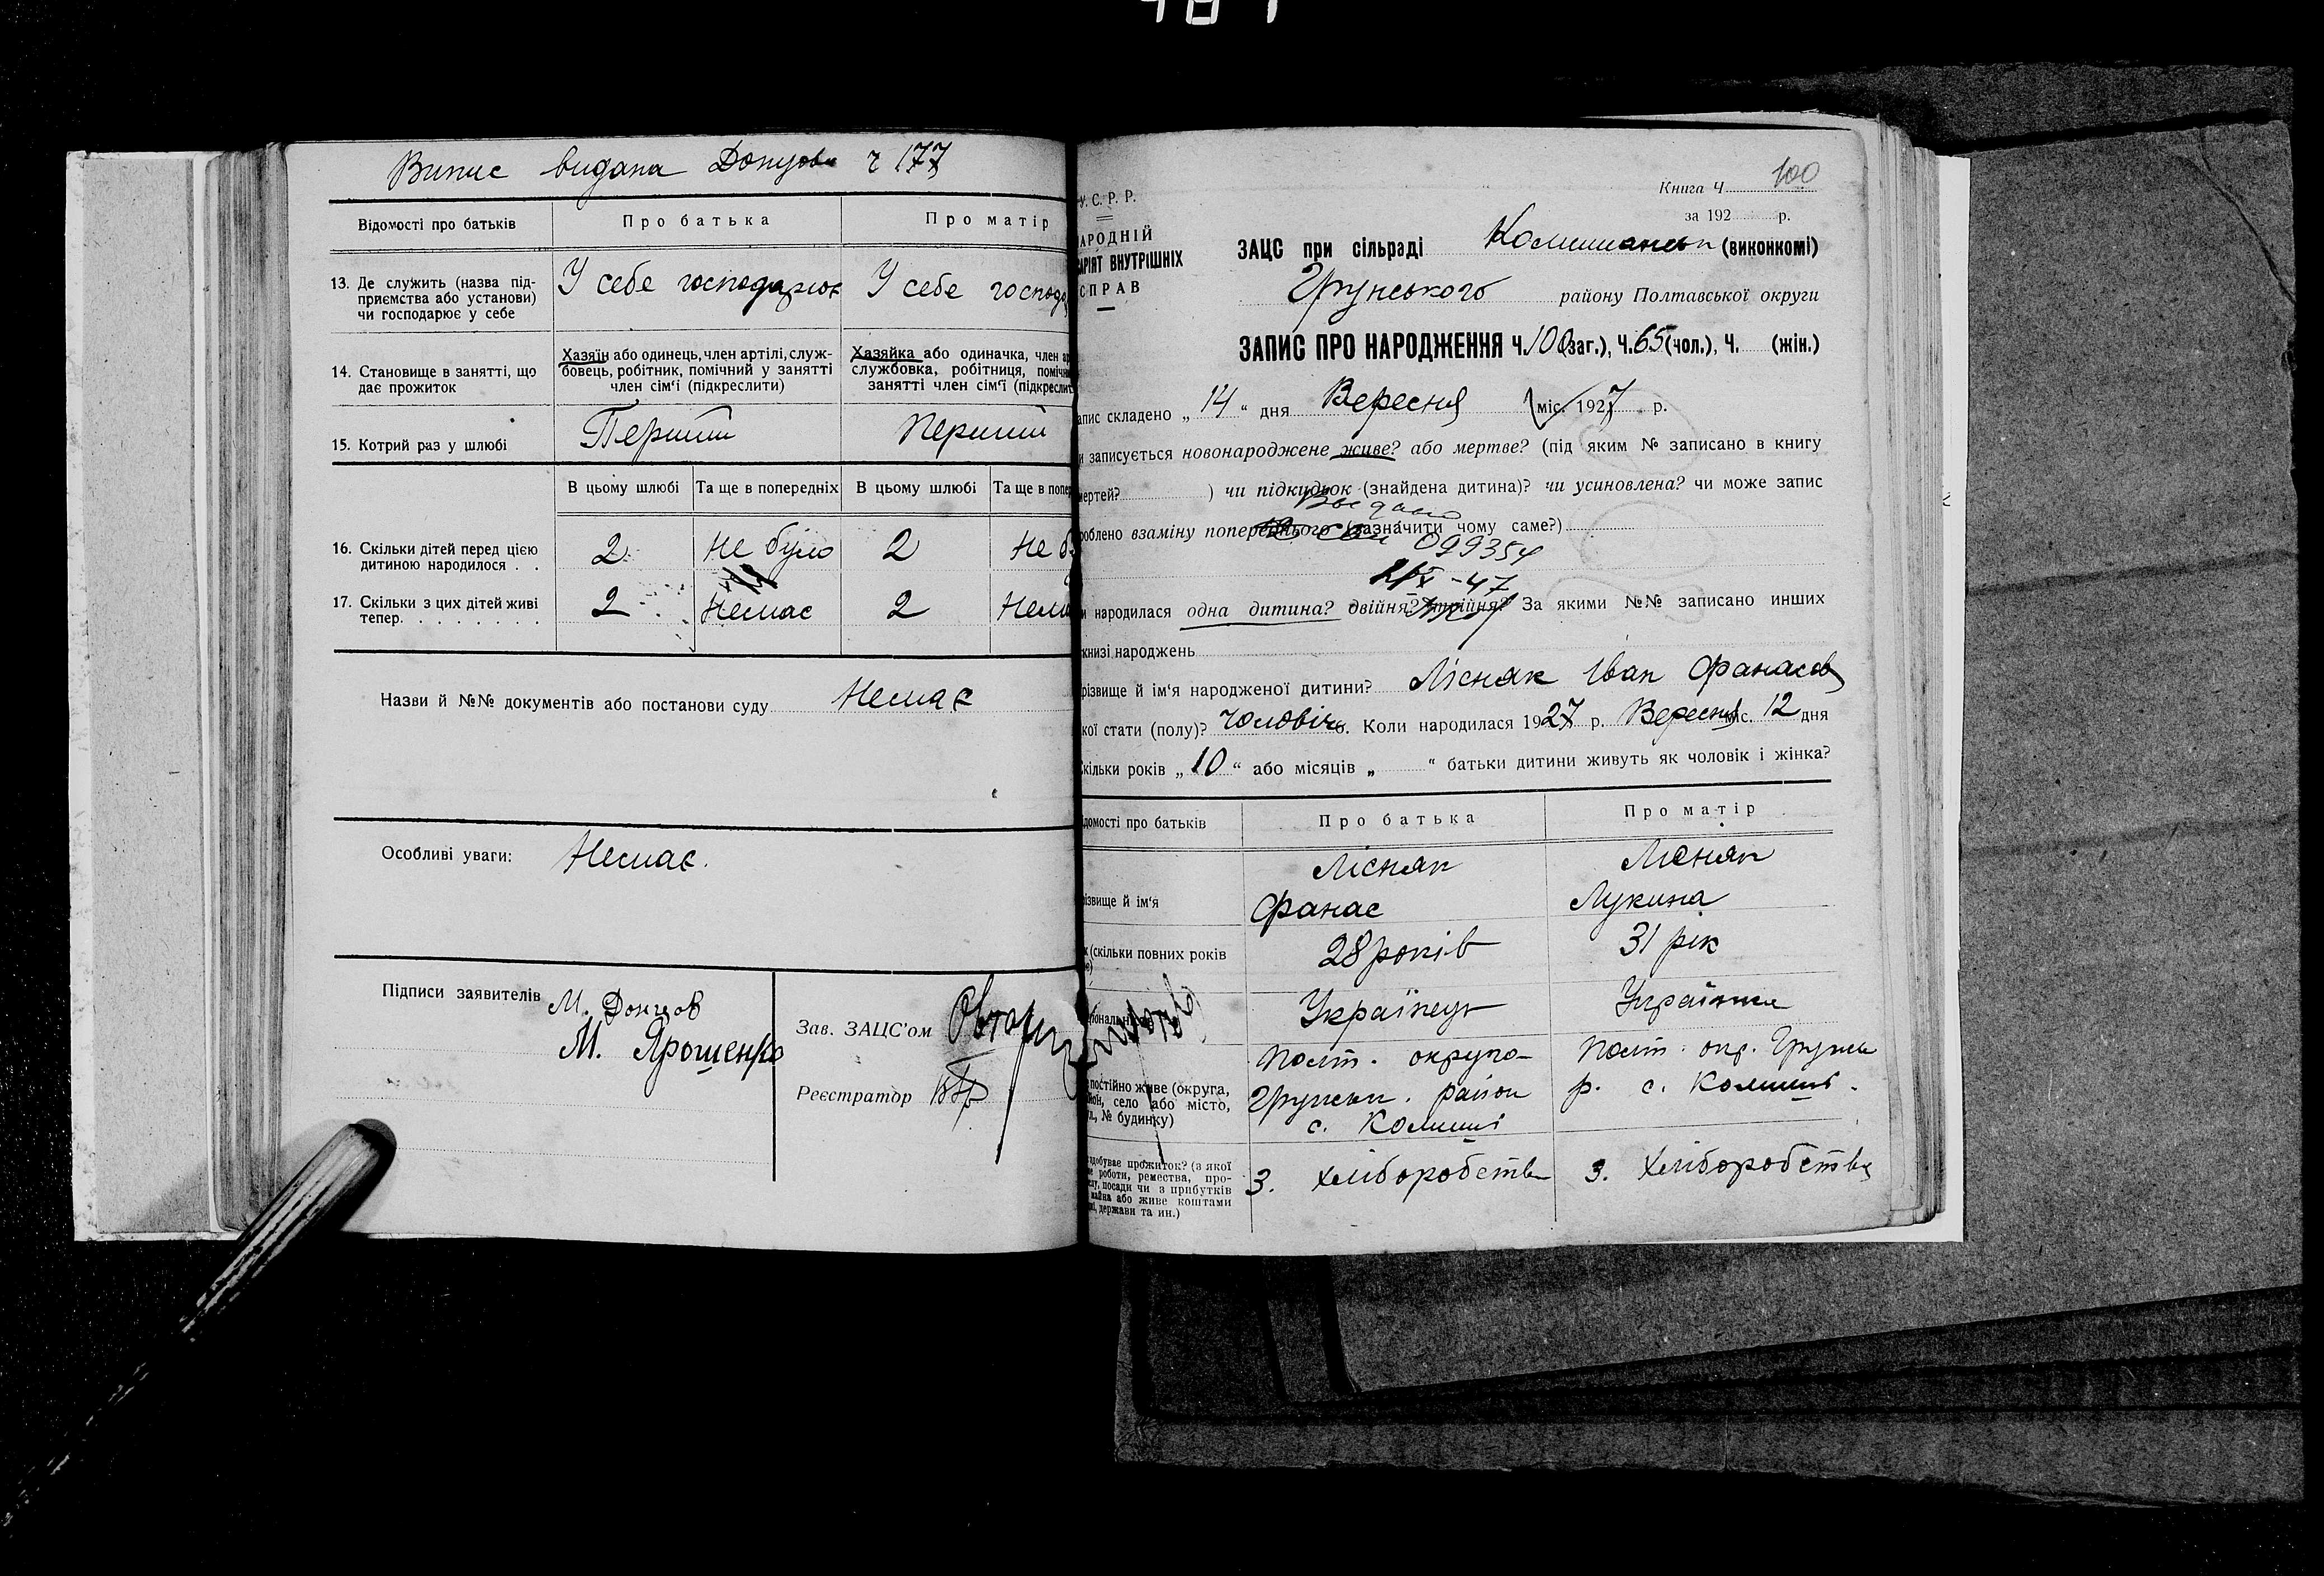 Випис видана Донцов ч 177
Відомості про батьків
Про батька
Про матір
13. Де служить (назва під-
приємства або установи)
чи господарює у себе
У себе господарює
У себе господ
14. Становище в занятті, що
дає прожиток
Хазяїн або одинець, член артілі, служ-
бовець, робітник, помічний у занятті
член сім'ї (підкреслити)
Хазяйка або одиначка, член ар
службовка, робітниця, помічн
занятті член сім'ї (підкреслит
15. Котрий раз у шлюбі
Перший
Перший
В цьому шлюбі
Та ще в попередніх
В цьому шлюбі
Та ще в попер
16. Скільки дітей перед цією
дитиною народилося . .
2
Не було
2
Не б
17. Скільки з цих дітей живі
тепер. . . . . . . .
2
Немає
2
Нема
Назви й №№ документів або постанови суду Немає
Особливі уваги: Немає.
Підписи заявителів М. Донцов
М. Ярошенко
Зав. ЗАЦС'ом
Реєстратор
100
Книга Ч
за 192 р.
У. С. Р. Р.
АРОДНІЙ
АРІЯТ ВНУТРІШНІХ
СПРАВ
ЗАЦС при сільраді Комишанськ (виконкомі)
Грунського району Полтавської округи
ЗАПИС ПРО НАРОДЖЕННЯ Ч. 100 (заг.), Ч. 65 (чол.), Ч. (жін.)
апис складено „ 14 “ дня Вересня міс. 1927 р.
и записується новонароджене живе? або мертве? (під яким № записано в книгу
мертей? ) чи підкидьок (знайдена дитина)? чи усиновлена? чи може запис
роблено взаміну попереднього (зазначити чому саме?)
099354
2/X-47
и народилася одна дитина? двійня? трійня? За якими №№ записано инших
книзі народжень
різвище й ім'я народженої дитини? Лісняк Іван Фанасов
кої стати (полу)? Чоловічо. Коли народилася 1927 р. Вересня міс. 12 дня
кільки років „ 10 “ або місяців „ “ батьки дитини живуть як чоловік і жінка?
домості про батьків
Про батька
Про матір
ізвище й ім'я
Лісняк
Фанас
Лісняк
Лукина
к (скільки повних років
28 років
31 рік
Українець
Українка
постійно живе (округа,
йон, село або місто,
ул., № будинку)
Полт. округа
Грунськ. район
с. Комиші
Полт. окр. Грунськ
р. с. Комиші.
здобуває прожиток? (з якої
е роботи, ремества, про-
слу, посади чи з прибутків
майна або живе коштами
ні, держави та ин.)
З. Хліборобства
З. Хліборобства